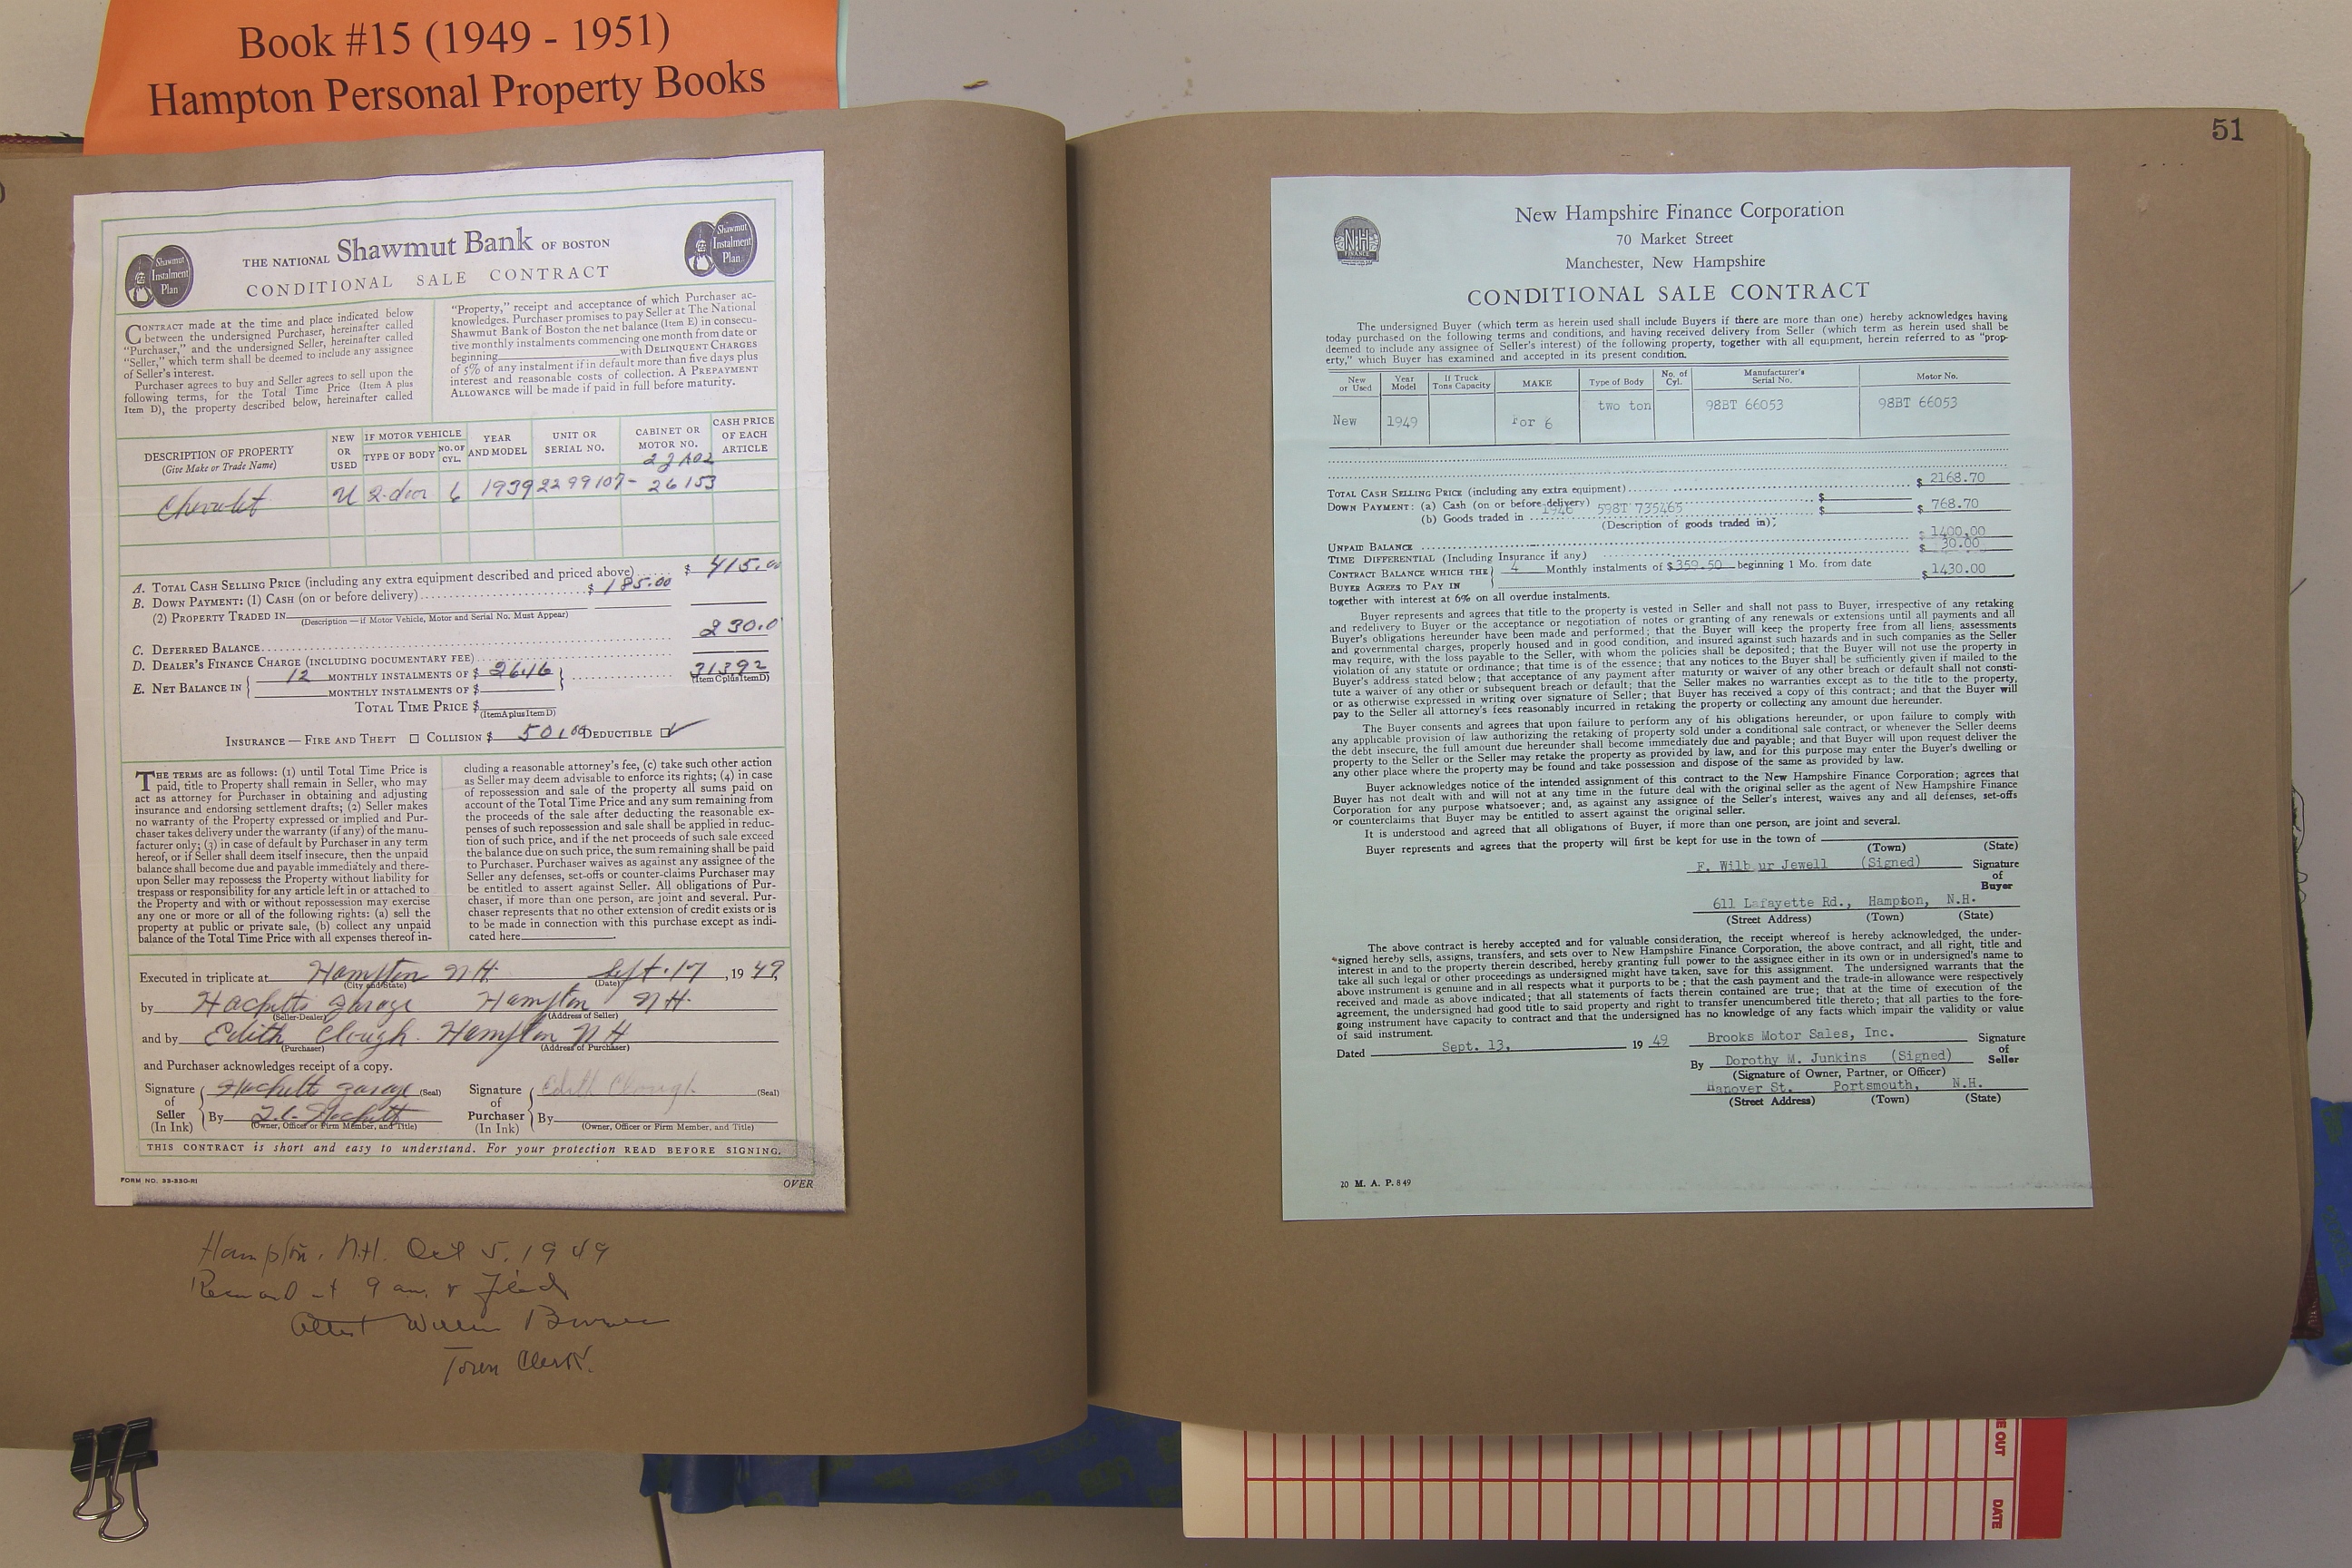 Book #15 (1949 - 1951)
Hampton Personal Property Books
Shawmut
Instalment
Plan
THE NATIONAL Shawmut Bank OF BOSTON
CONDITIONAL SALE CONTRACT
Shawmut
Instalment
Plan
CONTRACT made at the time and place indicated below
between the undersigned Purchaser, hereinafter called
"Purchaser," and the undersigned Seller, hereinafter called
"Seller," which term shall be deemed to include any assignee
of Seller's interest.
Purchaser agrees to buy and Seller agrees to sell upon the
following terms, for the Total Time Price (Item A plus
Item D), the property described below, hereinafter called
"Property," receipt and acceptance of which Purchaser ac-
knowledges. Purchaser promises to pay Seller at The National
Shawmut Bank of Boston the net balance (Item E) in consecu-
tive monthly instalments commencing one month from date or
beginning with DELINQUENT CHARGES
of 5% of any instalment if in default more than five days plus
interest and reasonable costs of collection. A PREPAYMENT
ALLOWANCE will be made if paid in full before maturity.
DESCRIPTION OF PROPERTY
(Give Make or Trade Name)
NEW
OR
USED
IF MOTOR VEHICLE
TYPE OF BODY
NO. OF
CYL.
YEAR
AND MODEL
UNIT OR
SERIAL NO.
CABINET OR
MOTOR NO.
CASH PRICE
OF EACH
ARTICLE
Chevrolet U 2-door 6 1939 2299107- 26153
A. TOTAL CASH SELLING PRICE (including any extra equipment described and priced above) $ 415.00
B. DOWN PAYMENT: (1) CASH (on or before delivery) $ 185.00
(2) PROPERTY TRADED IN
(Description — if Motor Vehicle, Motor and Serial No. Must Appear)
230.0
C. DEFERRED BALANCE
D. DEALER'S FINANCE CHARGE (INCLUDING DOCUMENTARY FEE)
E. NET BALANCE IN { 12 MONTHLY INSTALMENTS OF $ 26.16 } 31392
(Item C plus Item D)
MONTHLY INSTALMENTS OF $
TOTAL TIME PRICE $
(Item A plus Item D)
INSURANCE — FIRE AND THEFT ☐ COLLISION $ DEDUCTIBLE ☑
THE TERMS are as follows: (1) until Total Time Price is
paid, title to Property shall remain in Seller, who may
act as attorney for Purchaser in obtaining and adjusting
insurance and endorsing settlement drafts; (2) Seller makes
no warranty of the Property expressed or implied and Pur-
chaser takes delivery under the warranty (if any) of the manu-
facturer only; (3) in case of default by Purchaser in any term
hereof, or if Seller shall deem itself insecure, then the unpaid
balance shall become due and payable immediately and there-
upon Seller may repossess the Property without liability for
trespass or responsibility for any article left in or attached to
the Property and with or without repossession may exercise
any one or more or all of the following rights: (a) sell the
property at public or private sale, (b) collect any unpaid
balance of the Total Time Price with all expenses thereof in-
cluding a reasonable attorney's fee, (c) take such other action
as Seller may deem advisable to enforce its rights; (4) in case
of repossession and sale of the property all sums paid on
account of the Total Time Price and any sum remaining from
the proceeds of the sale after deducting the reasonable ex-
penses of such repossession and sale shall be applied in reduc-
tion of such price, and if the net proceeds of such sale exceed
the balance due on such price, the sum remaining shall be paid
to Purchaser. Purchaser waives as against any assignee of the
Seller any defenses, set-offs or counter-claims Purchaser may
be entitled to assert against Seller. All obligations of Pur-
chaser, if more than one person, are joint and several. Pur-
chaser represents that no other extension of credit exists or is
to be made in connection with this purchase except as indi-
cated here
Executed in triplicate at Hampton N.H. Sept. 17, 1949
(City and State) (Date)
by Hacketts Garage Hampton N.H.
(Seller-Dealer) (Address of Seller)
and by Edith Clough. Hampton N H
(Purchaser) (Address of Purchaser)
and Purchaser acknowledges receipt of a copy.
Signature
of
Seller
(In Ink)
Hacketts Garage (Seal)
By Hackett
(Owner, Officer or Firm Member, and Title)
Signature
of
Purchaser
(In Ink)
Edith Clough (Seal)
By
(Owner, Officer or Firm Member, and Title)
THIS CONTRACT is short and easy to understand. For your protection READ BEFORE SIGNING.
FORM NO. 33-330-RI
OVER
Hampton, N.H. Oct 5, 1949
Received at 9 am. & Filed
Attest
Town Clerk.
51
NH
FINANCE
New Hampshire Finance Corporation
70 Market Street
Manchester, New Hampshire
CONDITIONAL SALE CONTRACT
The undersigned Buyer (which term as herein used shall include Buyers if there are more than one) hereby acknowledges having
today purchased on the following terms and conditions, and having received delivery from Seller (which term as herein used shall be
deemed to include any assignee of Seller's interest) of the following property, together with all equipment, herein referred to as "prop-
erty," which Buyer has examined and accepted in its present condition.
New
or Used
Year
Model
If Truck
Tons Capacity
MAKE
Type of Body
No. of
Cyl.
Manufacturer's
Serial No.
Motor No.
New 1949 For 6 two ton 98BT 66053 98BT 66053
TOTAL CASH SELLING PRICE (including any extra equipment) $ 2168.70
DOWN PAYMENT: (a) Cash (on or before delivery) $ $ 768.70
(b) Goods traded in 1946 598T 735465 $
(Description of goods traded in);
UNPAID BALANCE 1400.00
TIME DIFFERENTIAL (Including Insurance if any) $ 30.00
CONTRACT BALANCE WHICH THE
BUYER AGREES TO PAY IN
4 Monthly instalments of $ 359.50 beginning 1 Mo. from date $ 1430.00
together with interest at 6% on all overdue instalments.
Buyer represents and agrees that title to the property is vested in Seller and shall not pass to Buyer, irrespective of any retaking
and redelivery to Buyer or the acceptance or negotiation of notes or granting of any renewals or extensions until all payments and all
Buyer's obligations hereunder have been made and performed; that the Buyer will keep the property free from all liens, assessments
and governmental charges, properly housed and in good condition, and insured against such hazards and in such companies as the Seller
may require, with the loss payable to the Seller, with whom the policies shall be deposited; that the Buyer will not use the property in
violation of any statute or ordinance; that time is of the essence; that any notices to the Buyer shall be sufficiently given if mailed to the
Buyer's address stated below; that acceptance of any payment after maturity or waiver of any other breach or default shall not consti-
tute a waiver of any other or subsequent breach or default; that the Seller makes no warranties except as to the title to the property,
or as otherwise expressed in writing over signature of Seller; that Buyer has received a copy of this contract; and that the Buyer will
pay to the Seller all attorney's fees reasonably incurred in retaking the property or collecting any amount due hereunder.
The Buyer consents and agrees that upon failure to perform any of his obligations hereunder, or upon failure to comply with
any applicable provision of law authorizing the retaking of property sold under a conditional sale contract, or whenever the Seller deems
the debt insecure, the full amount due hereunder shall become immediately due and payable; and that Buyer will upon request deliver the
property to the Seller or the Seller may retake the property as provided by law, and for this purpose may enter the Buyer's dwelling or
any other place where the property may be found and take possession and dispose of the same as provided by law.
Buyer acknowledges notice of the intended assignment of this contract to the New Hampshire Finance Corporation; agrees that
Buyer has not dealt with and will not at any time in the future deal with the original seller as the agent of New Hampshire Finance
Corporation for any purpose whatsoever; and, as against any assignee of the Seller's interest, waives any and all defenses, set-offs
or counterclaims that Buyer may be entitled to assert against the original seller.
It is understood and agreed that all obligations of Buyer, if more than one person, are joint and several.
Buyer represents and agrees that the property will first be kept for use in the town of
(Town) (State)
F. Wilbur Jewell (Signed)
Signature
of
Buyer
611 Lafayette Rd., Hampton, N.H.
(Street Address) (Town) (State)
The above contract is hereby accepted and for valuable consideration, the receipt whereof is hereby acknowledged, the under-
signed hereby sells, assigns, transfers, and sets over to New Hampshire Finance Corporation, the above contract, and all right, title and
interest in and to the property therein described, hereby granting full power to the assignee either in its own or in undersigned's name to
take all such legal or other proceedings as undersigned might have taken, save for this assignment. The undersigned warrants that the
above instrument is genuine and in all respects what it purports to be; that the cash payment and the trade-in allowance were respectively
received and made as above indicated; that all statements of facts therein contained are true; that at the time of execution of the
agreement, the undersigned had good title to said property and right to transfer unencumbered title thereto; that all parties to the fore-
going instrument have capacity to contract and that the undersigned has no knowledge of any facts which impair the validity or value
of said instrument.
Dated Sept. 13, 19 49
Brooks Motor Sales, Inc.
Signature
of
Seller
By Dorothy M. Junkins (Signed)
(Signature of Owner, Partner, or Officer)
Hanover St. Portsmouth, N.H.
(Street Address) (Town) (State)
20 M. A. P. 8 49
E OUT
DATE